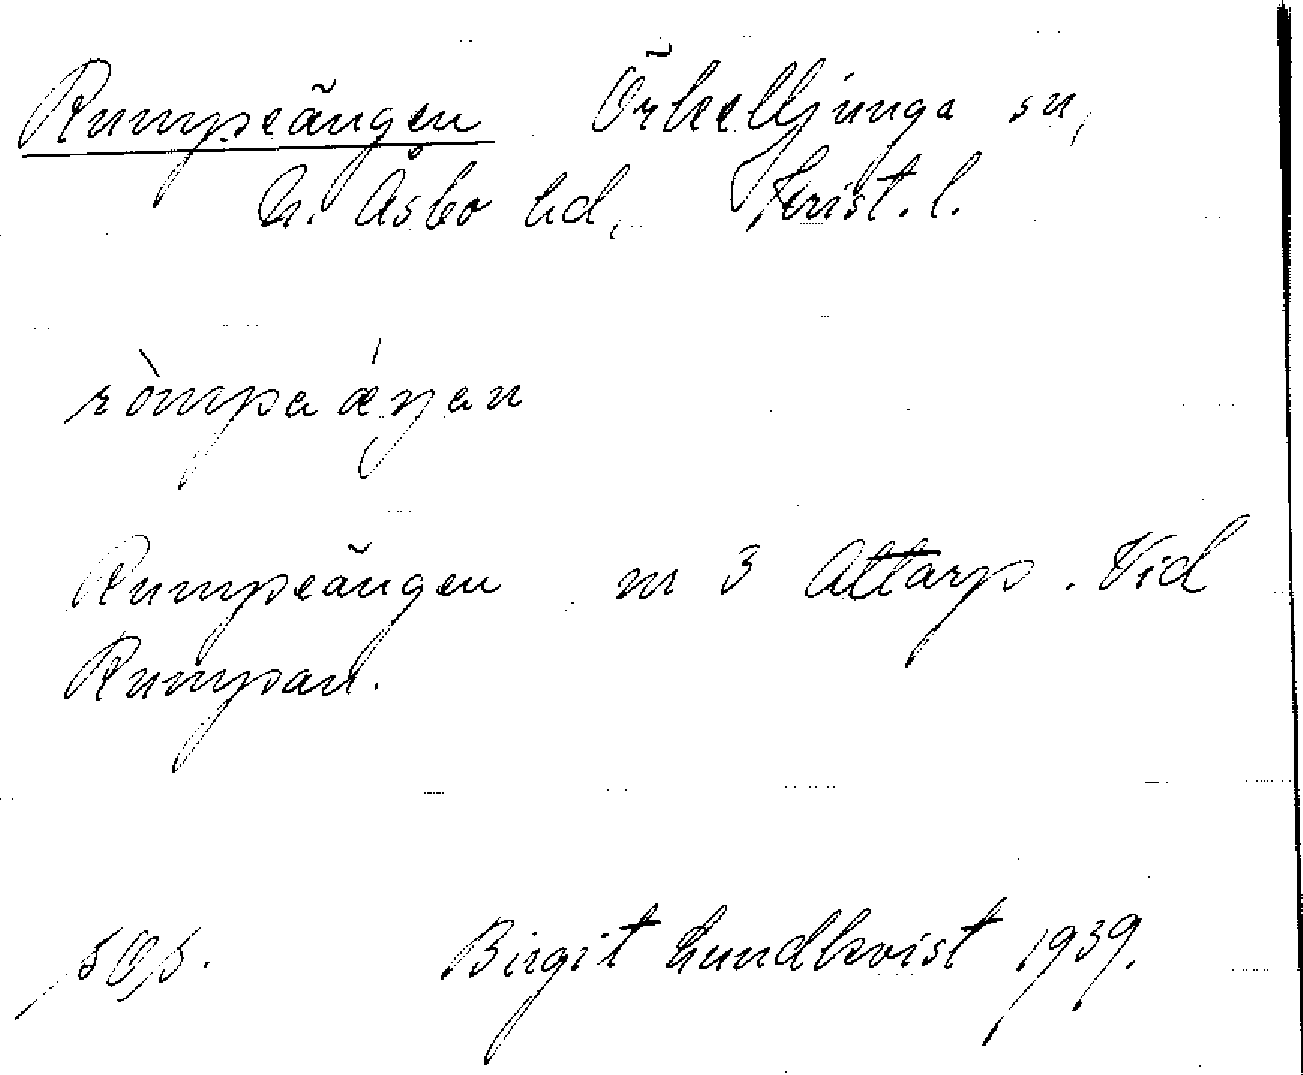 Rumpeängen Örkelljunga sn,
N. Åsbo hd, Krist. l.
ròmpaǽŋan
Rumpeängen nr 3 Attarp. Vid
Rumpan.
Birgit Lundkvist 1939.